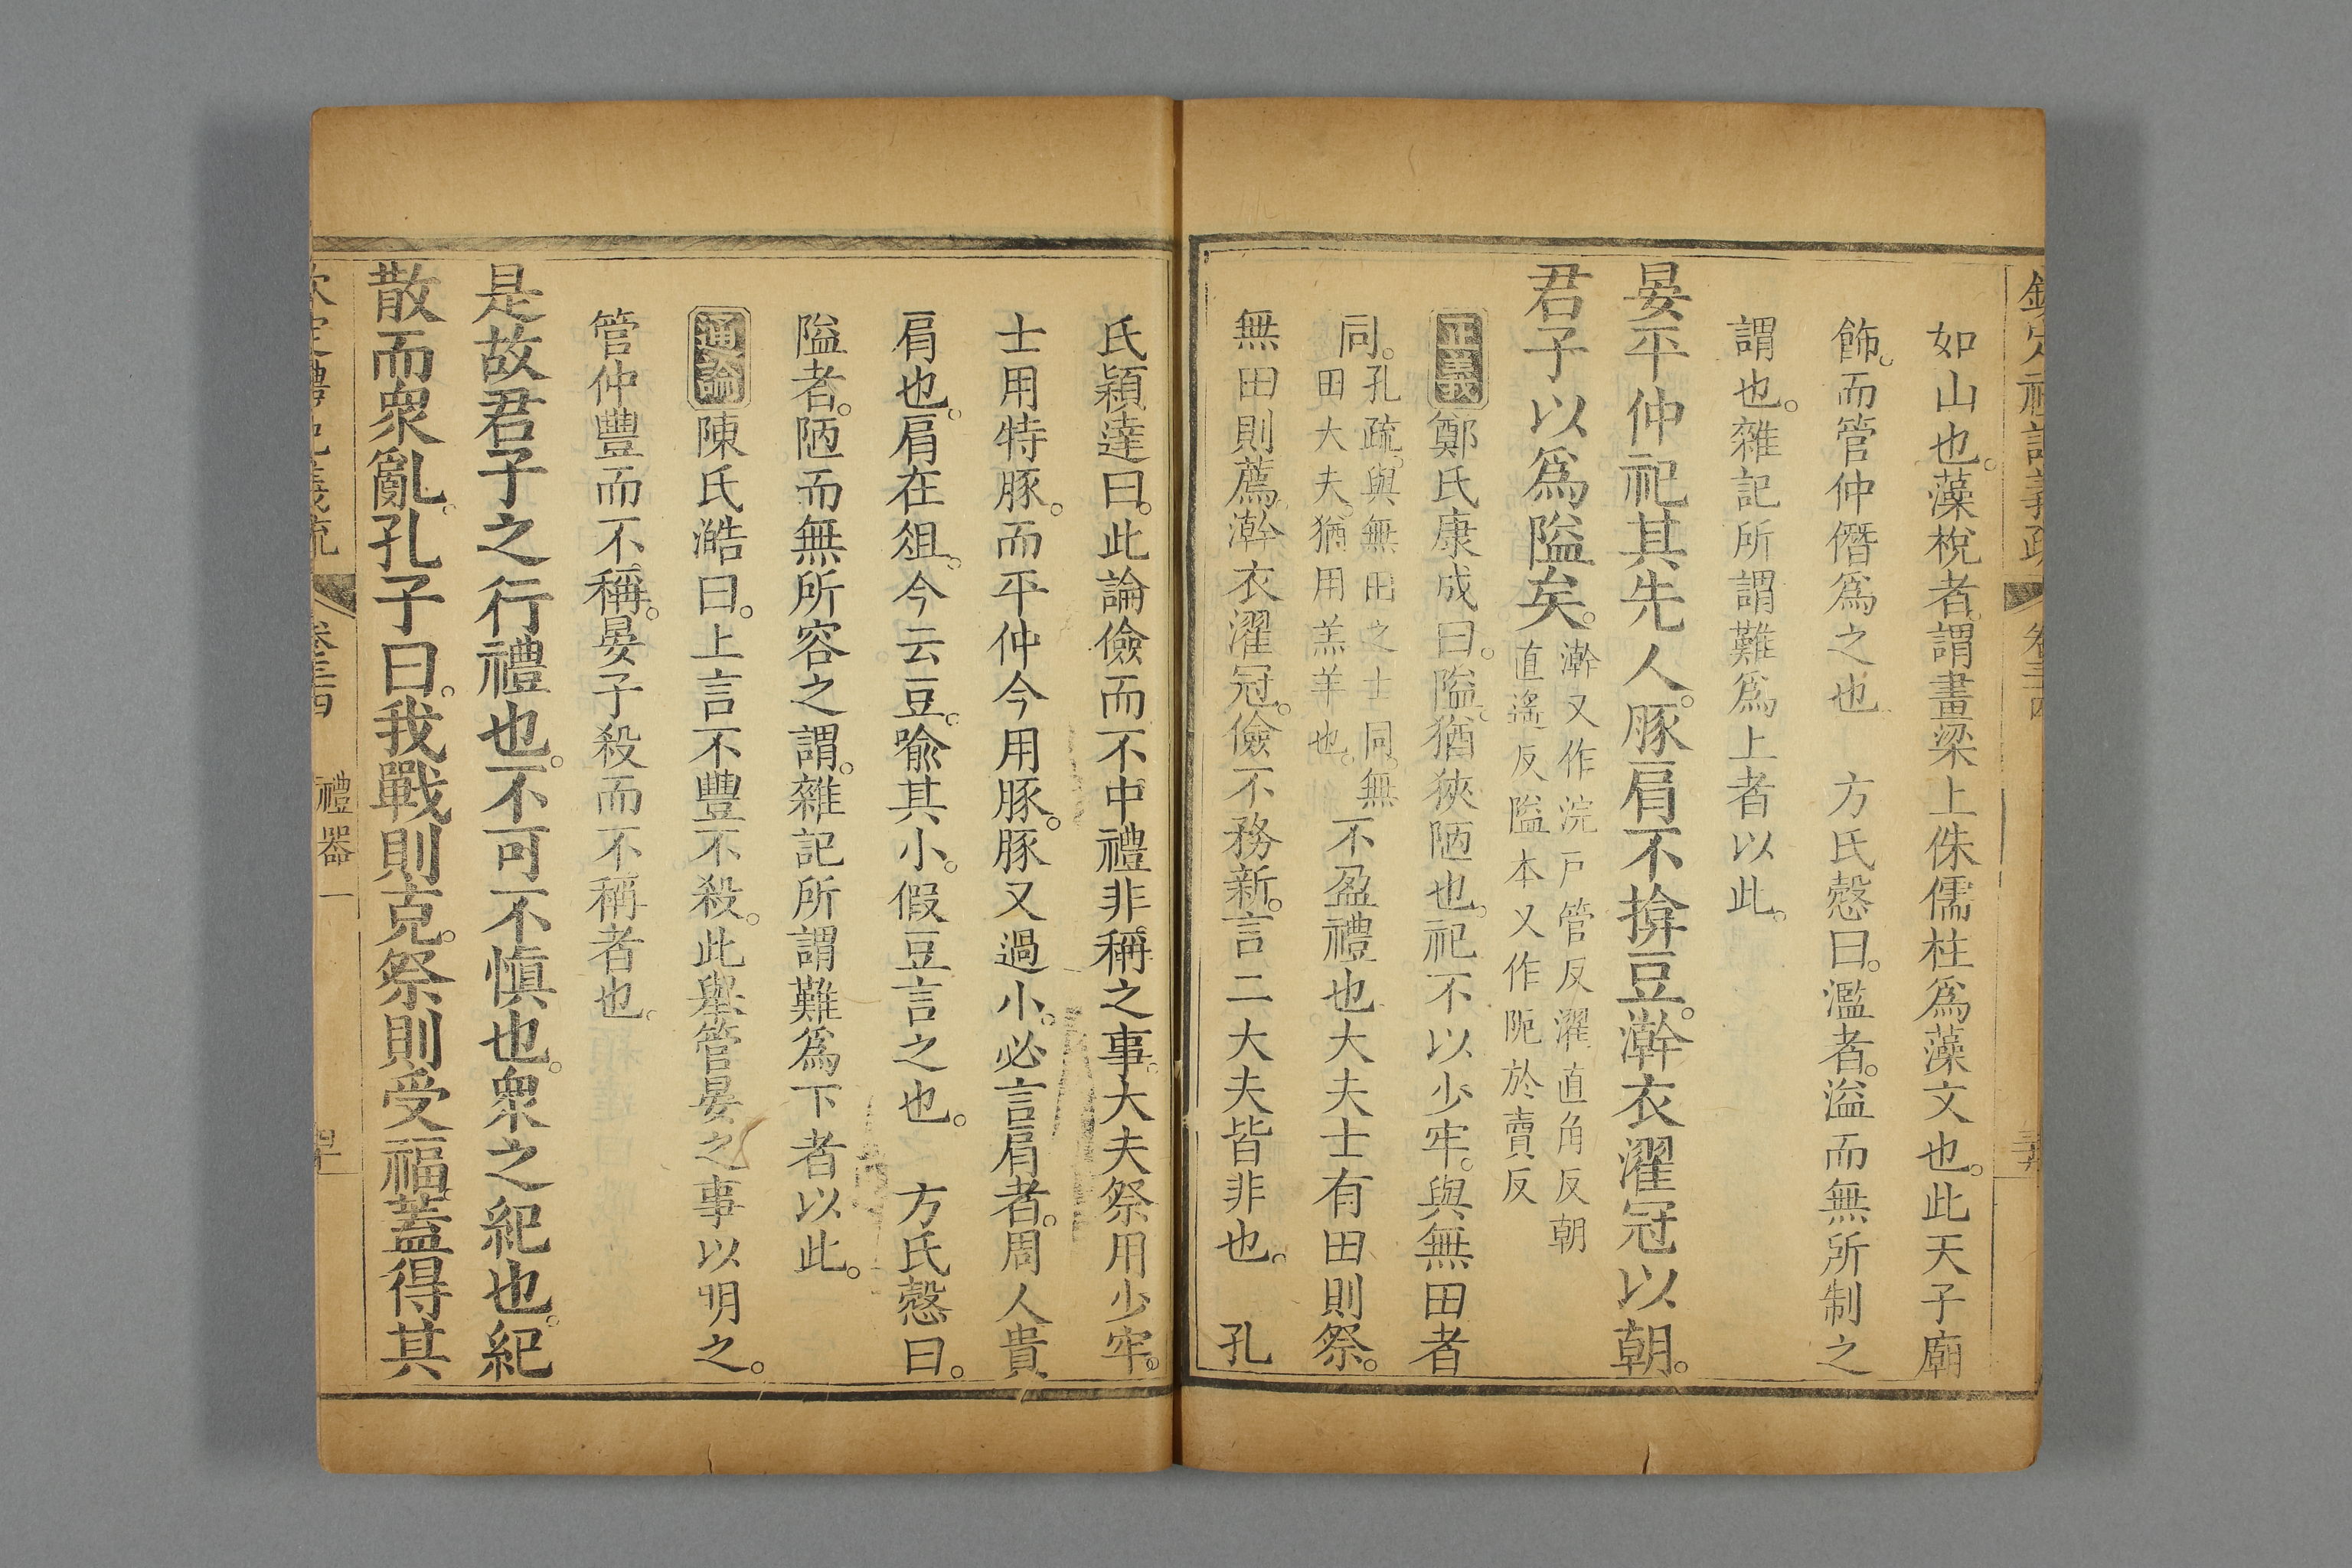 欽定禮記義疏 卷三十四
如山也。藻梲者。謂畫梁上侏儒柱爲藻文也。此天子廟
飾。而管仲僭爲之也 方氏慤曰。濫者。溢而無所制之
謂也。雜記所謂難爲上者以此。
晏平仲祀其先人。豚肩不揜豆。澣衣濯冠以朝。
君子以爲隘矣。澣又作浣戸管反濯直角反朝
直遙反隘本又作阨於賣反
正義鄭氏康成曰。隘。猶狹陋也。祀不以少牢。與無田者
同。孔疏。與無田之士同。無
田大夫。猶用羔羊也。不盈禮也大夫士有田則祭。
無田則薦。澣衣濯冠。儉不務新。言二大夫皆非也。 孔
氏穎達曰。此論儉而不中禮非稱之事。大夫祭用少牢。
士用特豚。而平仲今用豚。豚又過小。必言肩者。周人貴
肩也。肩在俎。今云豆。喩其小。假豆言之也。 方氏慤曰。
隘者。陋而無所容之謂。雜記所謂難爲下者以此。
通論陳氏澔曰。上言不豐不殺。此舉管晏之事以明之。
管仲豐而不稱。晏子殺而不稱者也。
是故君子之行禮也。不可不愼也。衆之紀也。紀
散而衆亂。孔子曰。我戰則克。祭則受福。蓋得其
欽定禮記義疏 卷三十四 禮器一